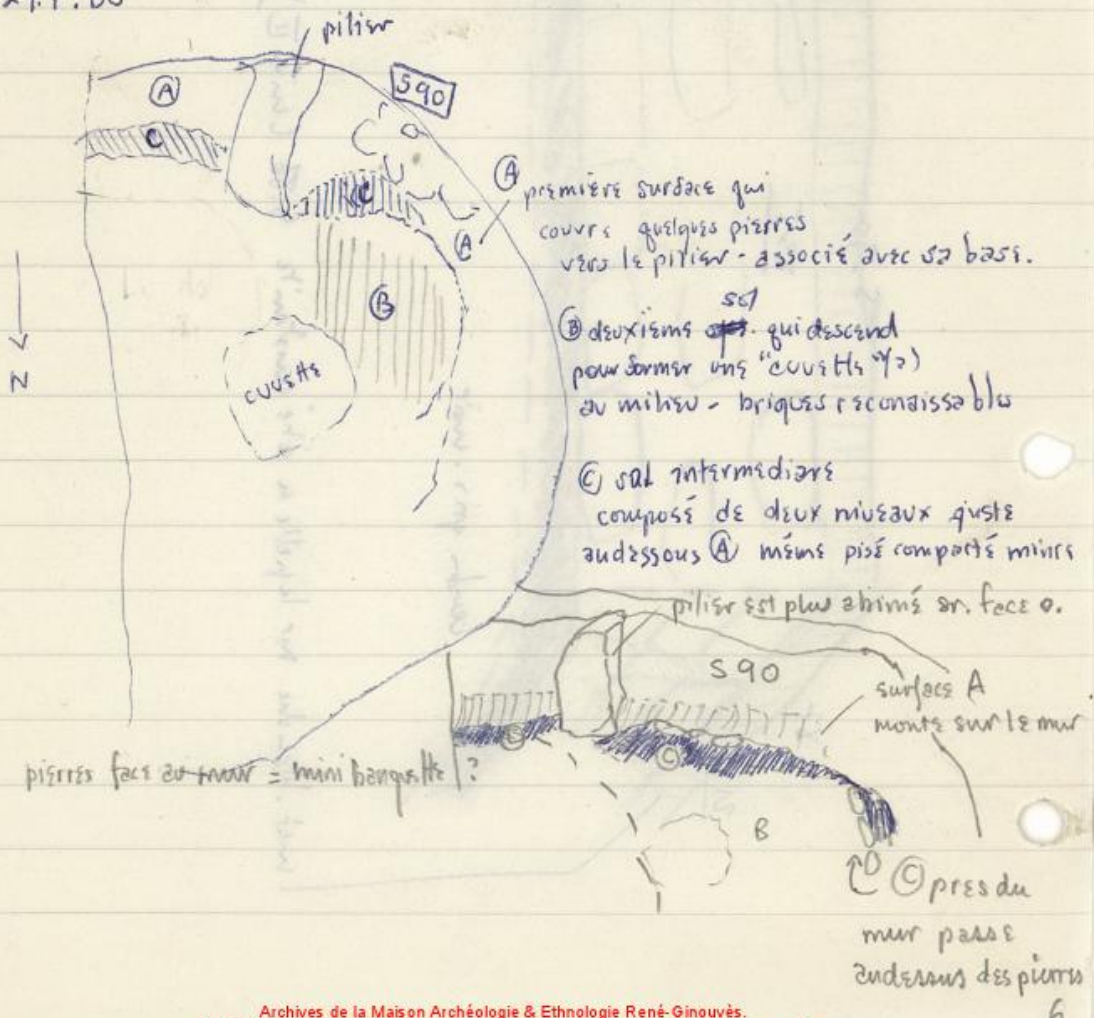 pilier
S90
A
C
C
A
B
cuvette
N
A première surface qui
couvre quelques pierres
vers le pilier - associé avec sa base.
B deuxième sol qui descend
pour former une "cuvette"(?)
au milieu - briques reconaissables
C sol intermediare
composé de deux niveaux juste
audessous A même pisé comparté mince
pilier est plus abimé sr. face o.
S90
surface A
monte sur le mur
C
C
B
pierres face au mur = mini banquette ?
C pres du
mur passe
audessus des pierres
6
Archives de la Maison Archéologie & Ethnologie René-Ginouvès.